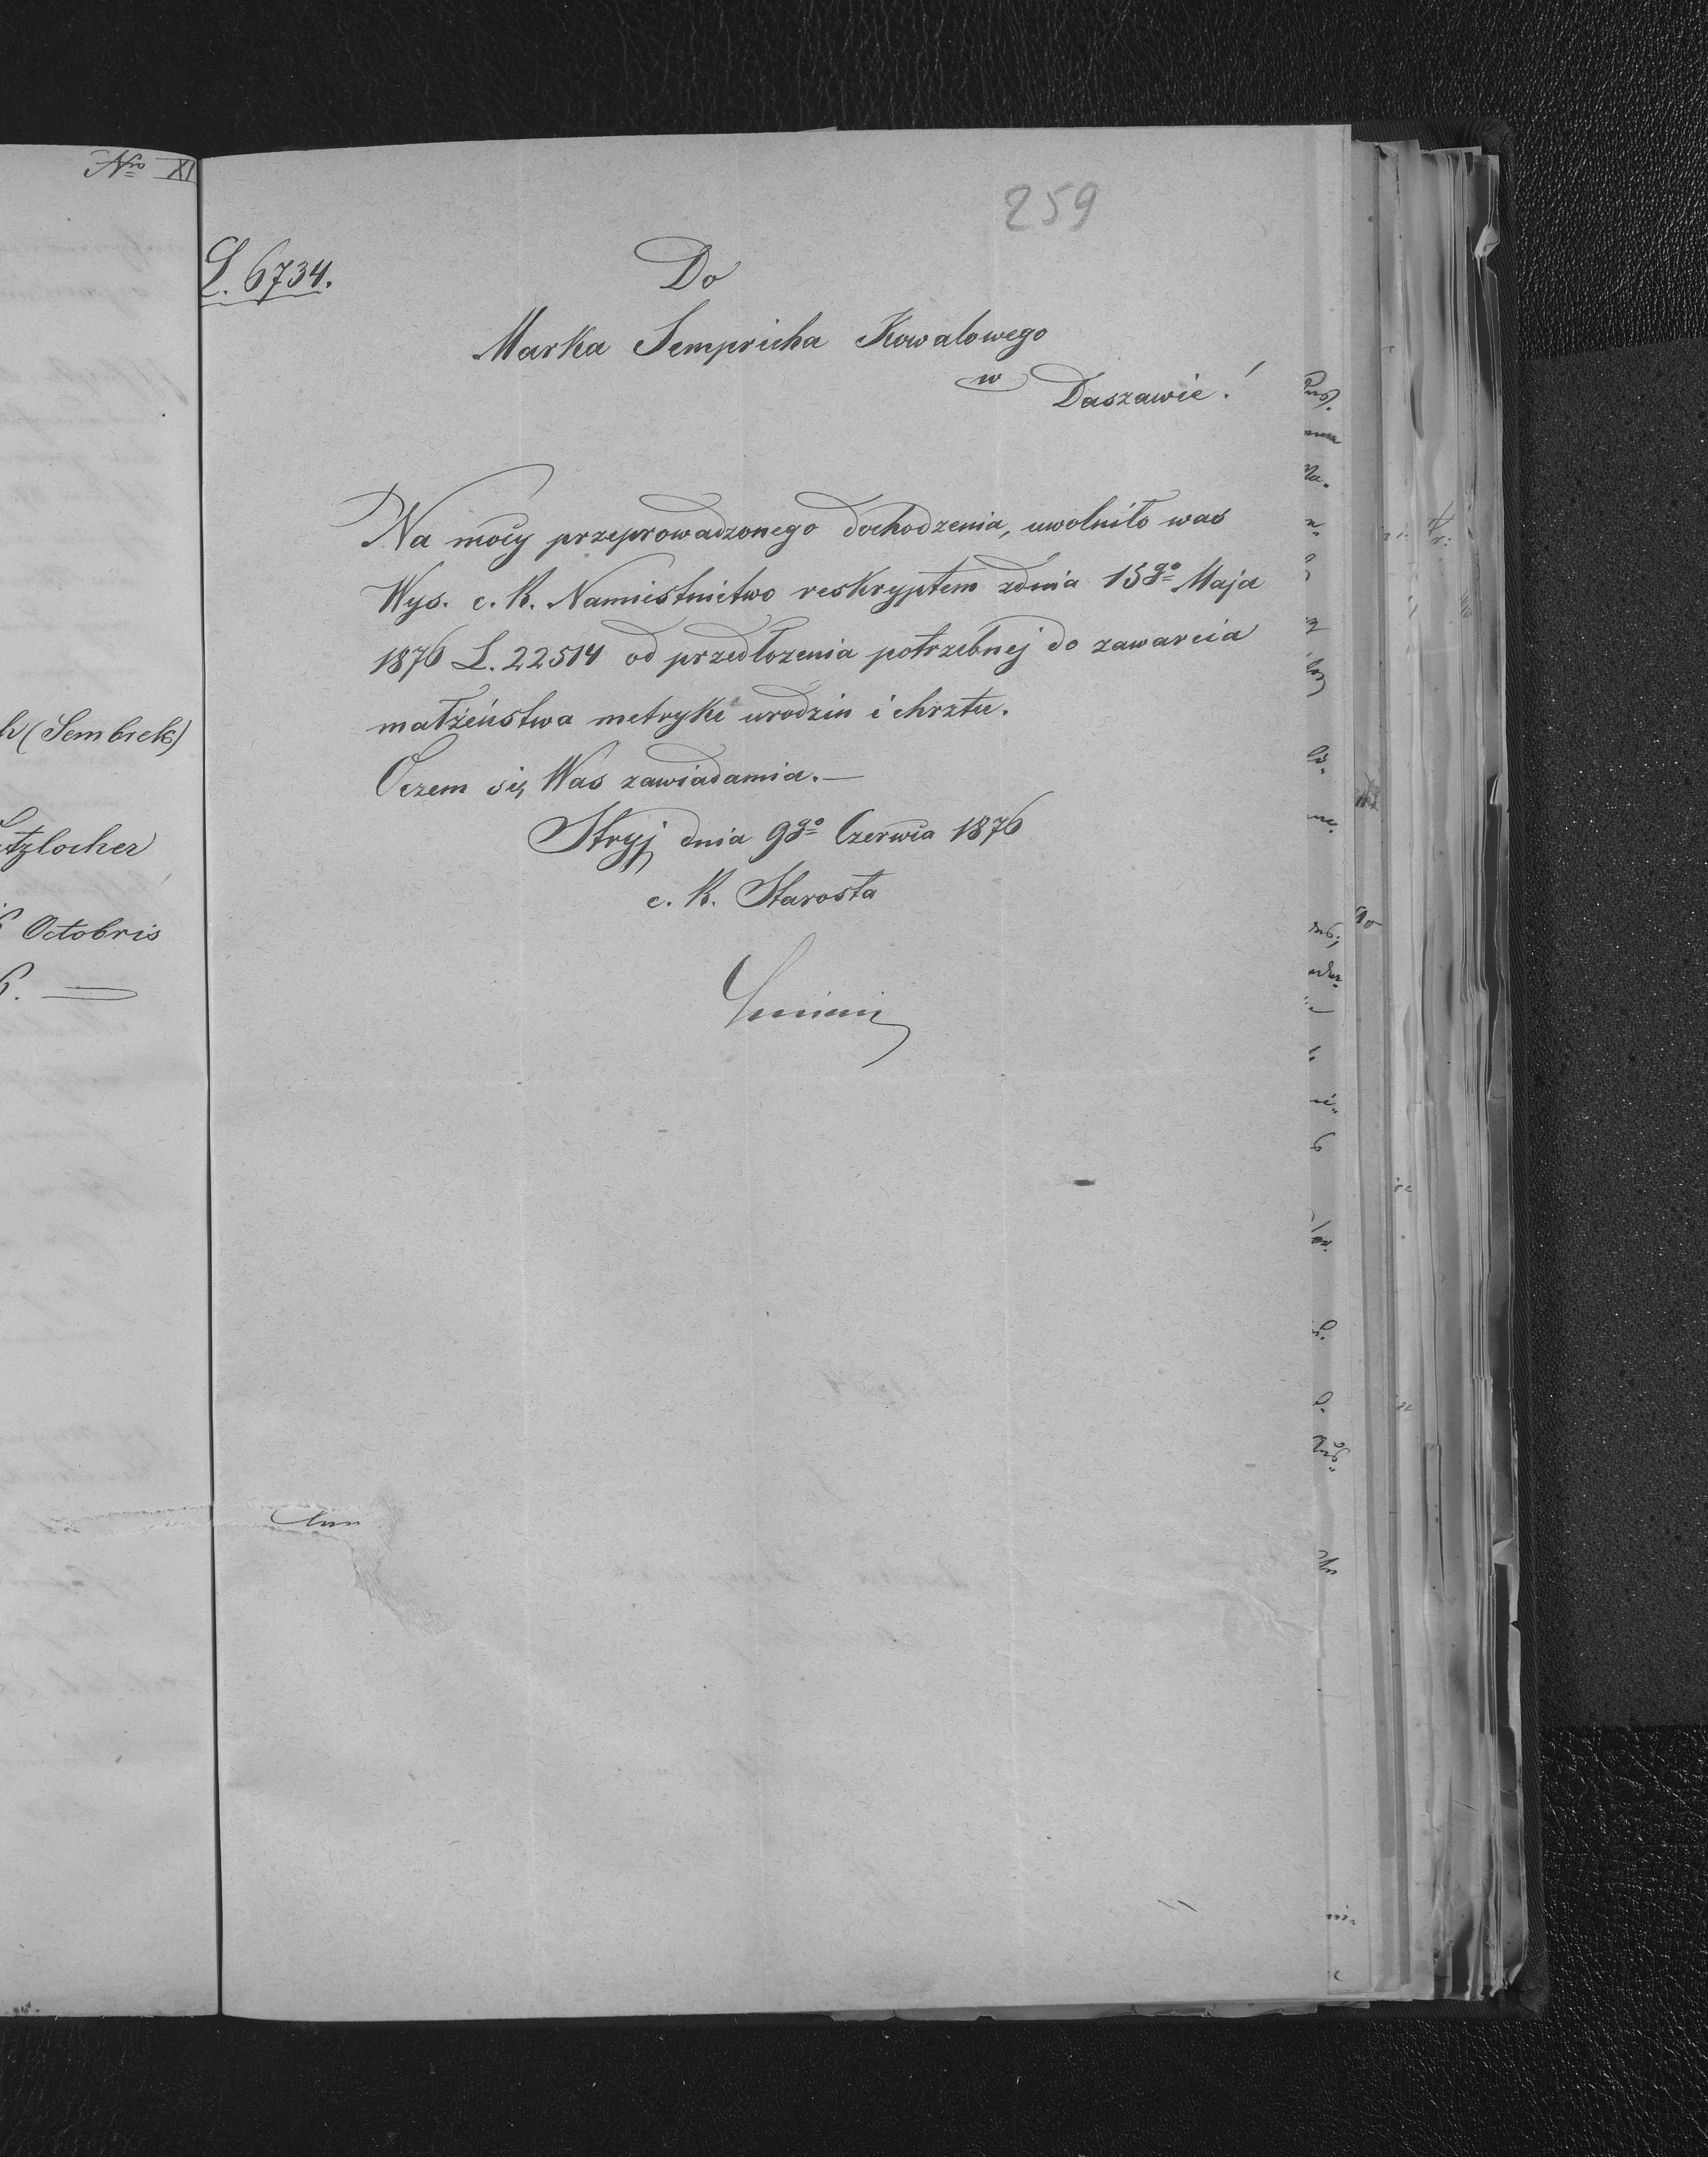 Nro XI
h (Sembrek)
etzlocher
6 Octobris
6. =
259
L. 6734.
Do
Marka Sempricha Kowalowego
w Daszawie!
Na mocy przeprowadzonego dochodzenia, uwolniło was
Wys. c. k. Namiestnictwo reskryptem zdnia 15go Maja
1876 L. 22514 od przedłozenia potrzebnej do zawarcia
małżeństwa metryki urodzin i chrztu.
Oczem się Was zawiadamia. —
Stryj dnia 9go Czerwca 1876
c. k. Starosta